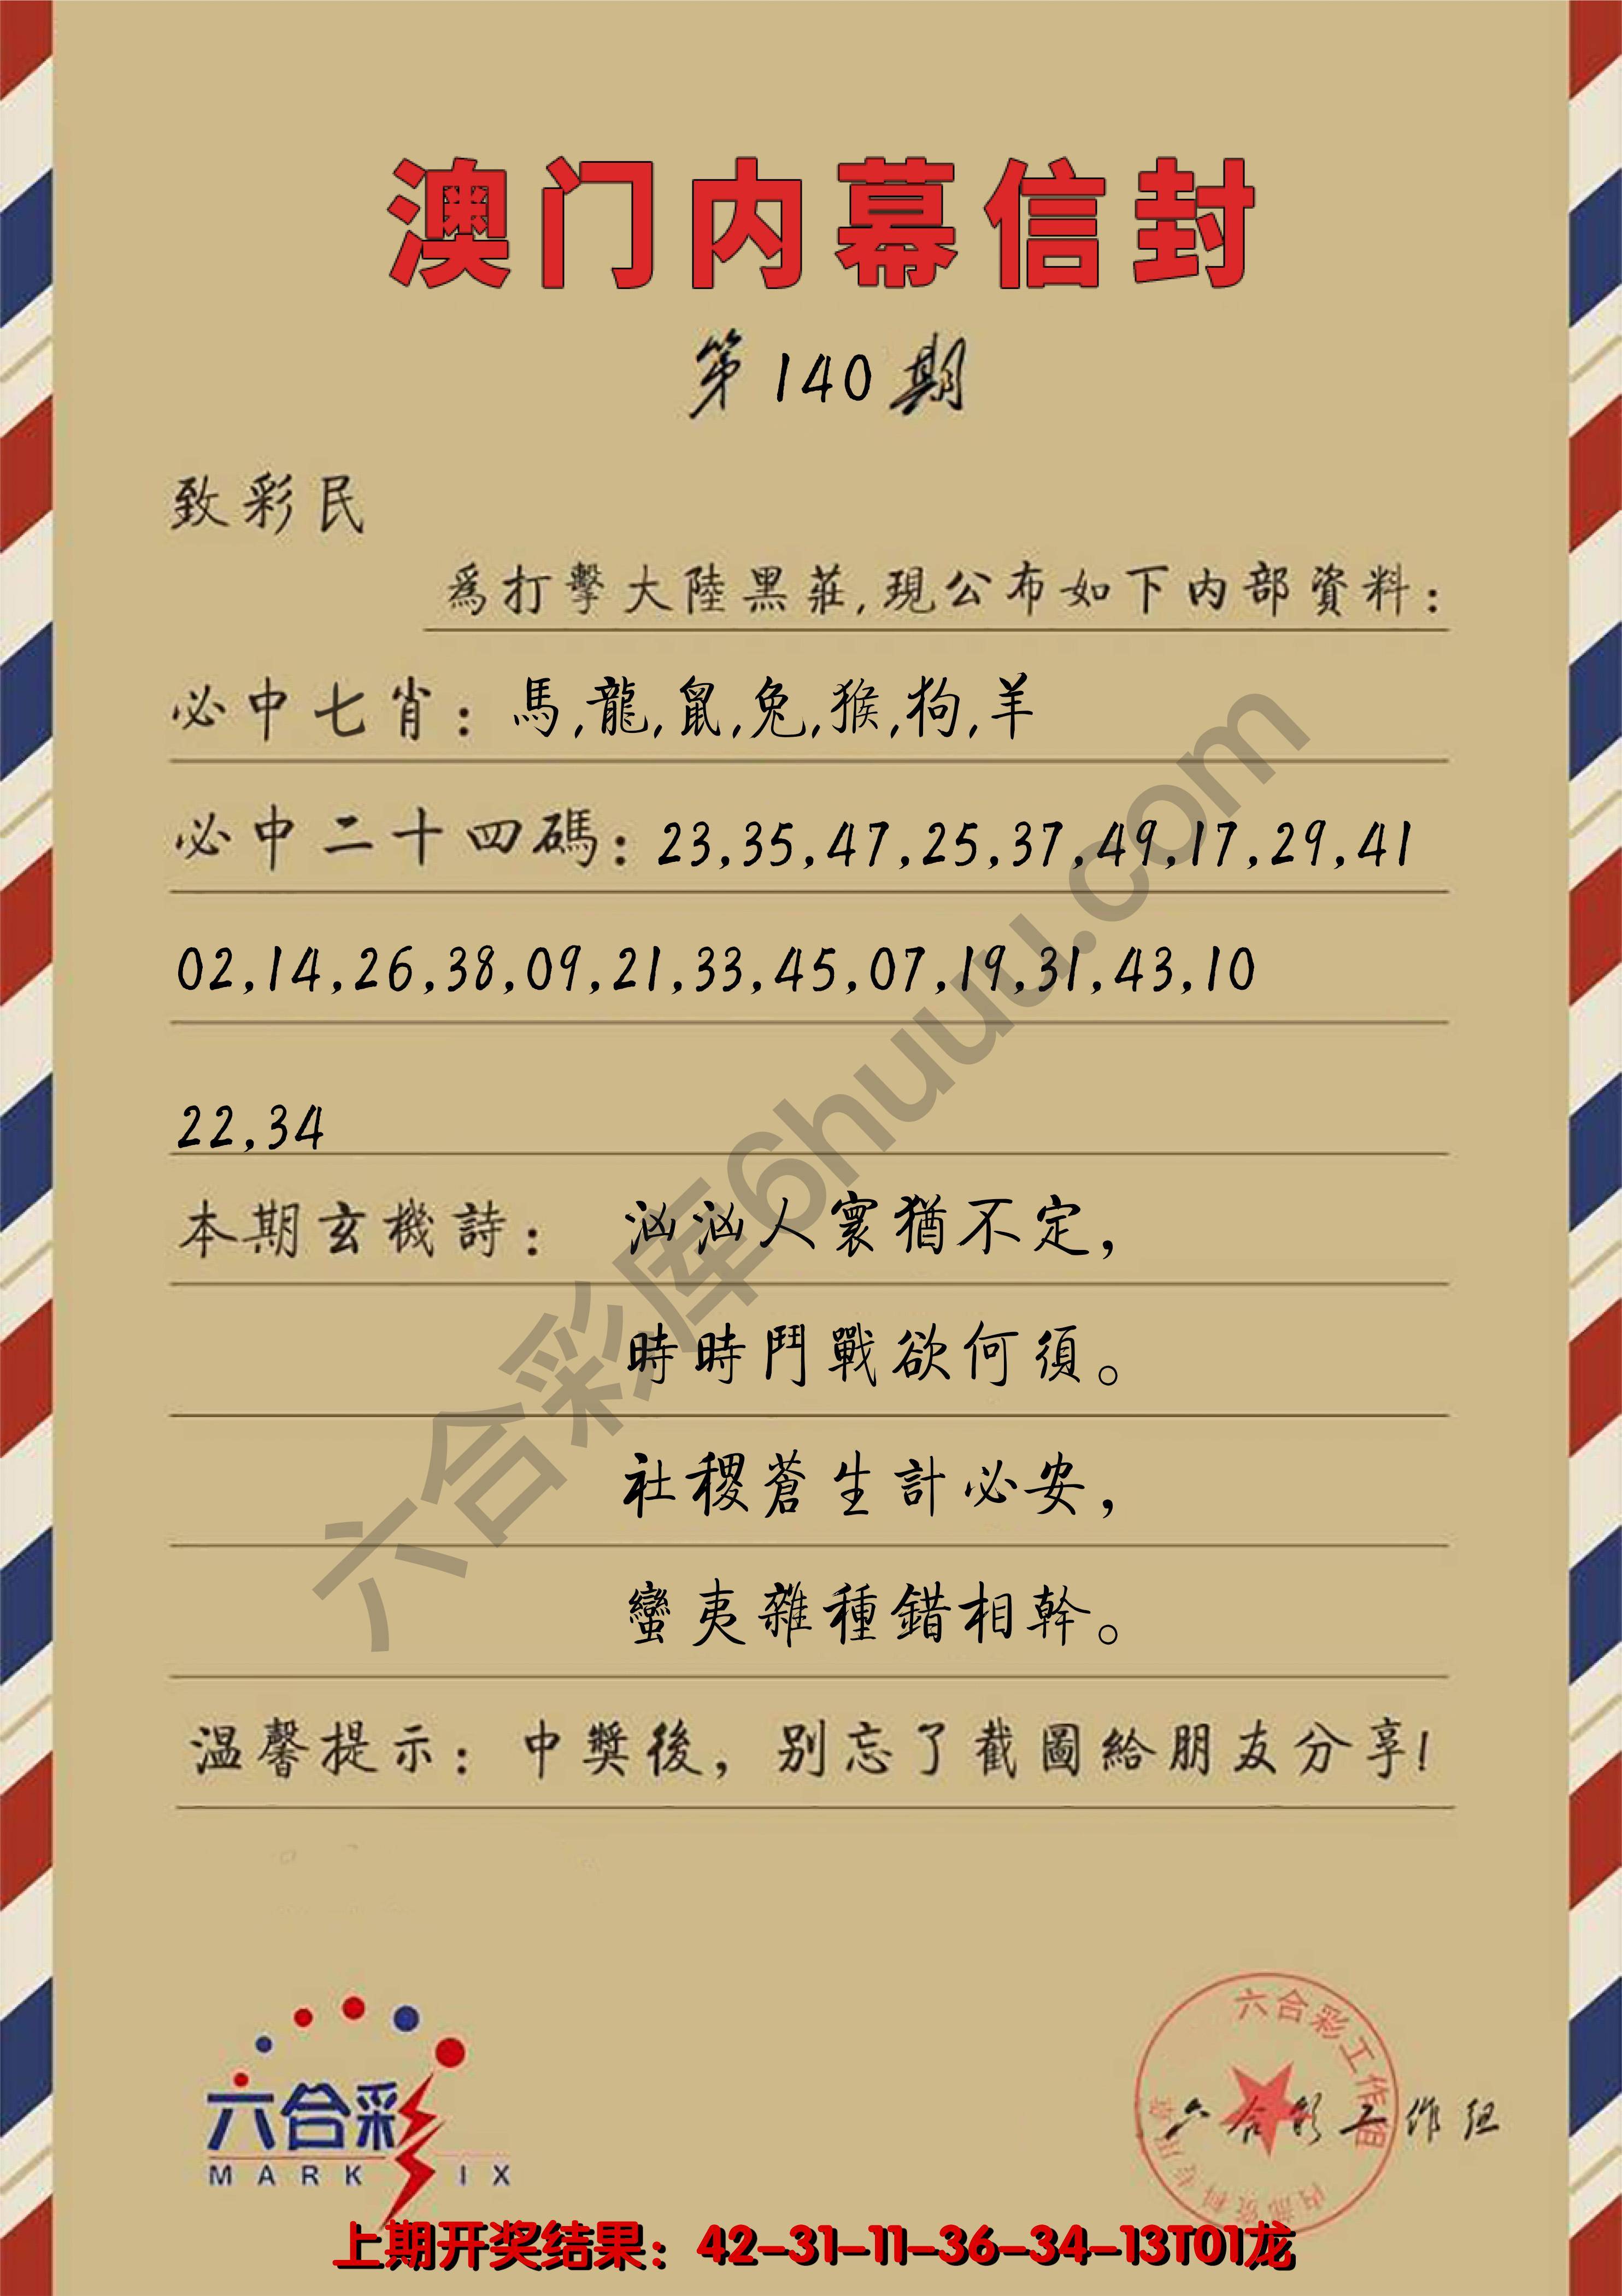 澳门内幕信封
第140期
致彩民
爲打擊大陸黑莊,現公布如下内部資料:
必中七肖: 馬,龍,鼠,兔,猴,狗,羊
必中二十四碼: 23,35,47,25,37,49,17,29,41
02,14,26,38,09,21,33,45,07,19,31,43,10
22,34
本期玄機詩: 汹汹人寰猶不定,
時時鬥戰欲何須。
社稷蒼生計必安,
蠻夷雜種錯相幹。
温馨提示: 中獎後, 别忘了截圖給朋友分享!
六合彩库6huuu.com
六合彩
MARK SIX
六合彩工作组
内部资料专用章
六合彩工作组
上期开奖结果: 42-31-11-36-34-13T01龙